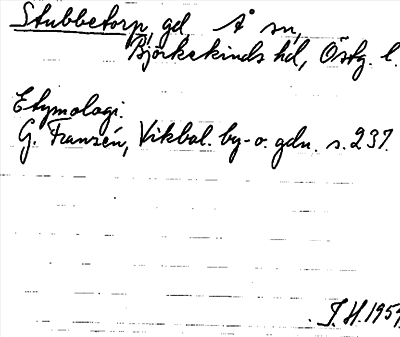 Stubbetorp, gd, Å sn,
Björkekinds hd, Östg. l.
Etymologi.
G. Franzén, Vikbol. by- o. gdn. s. 237.
I. H. 1959